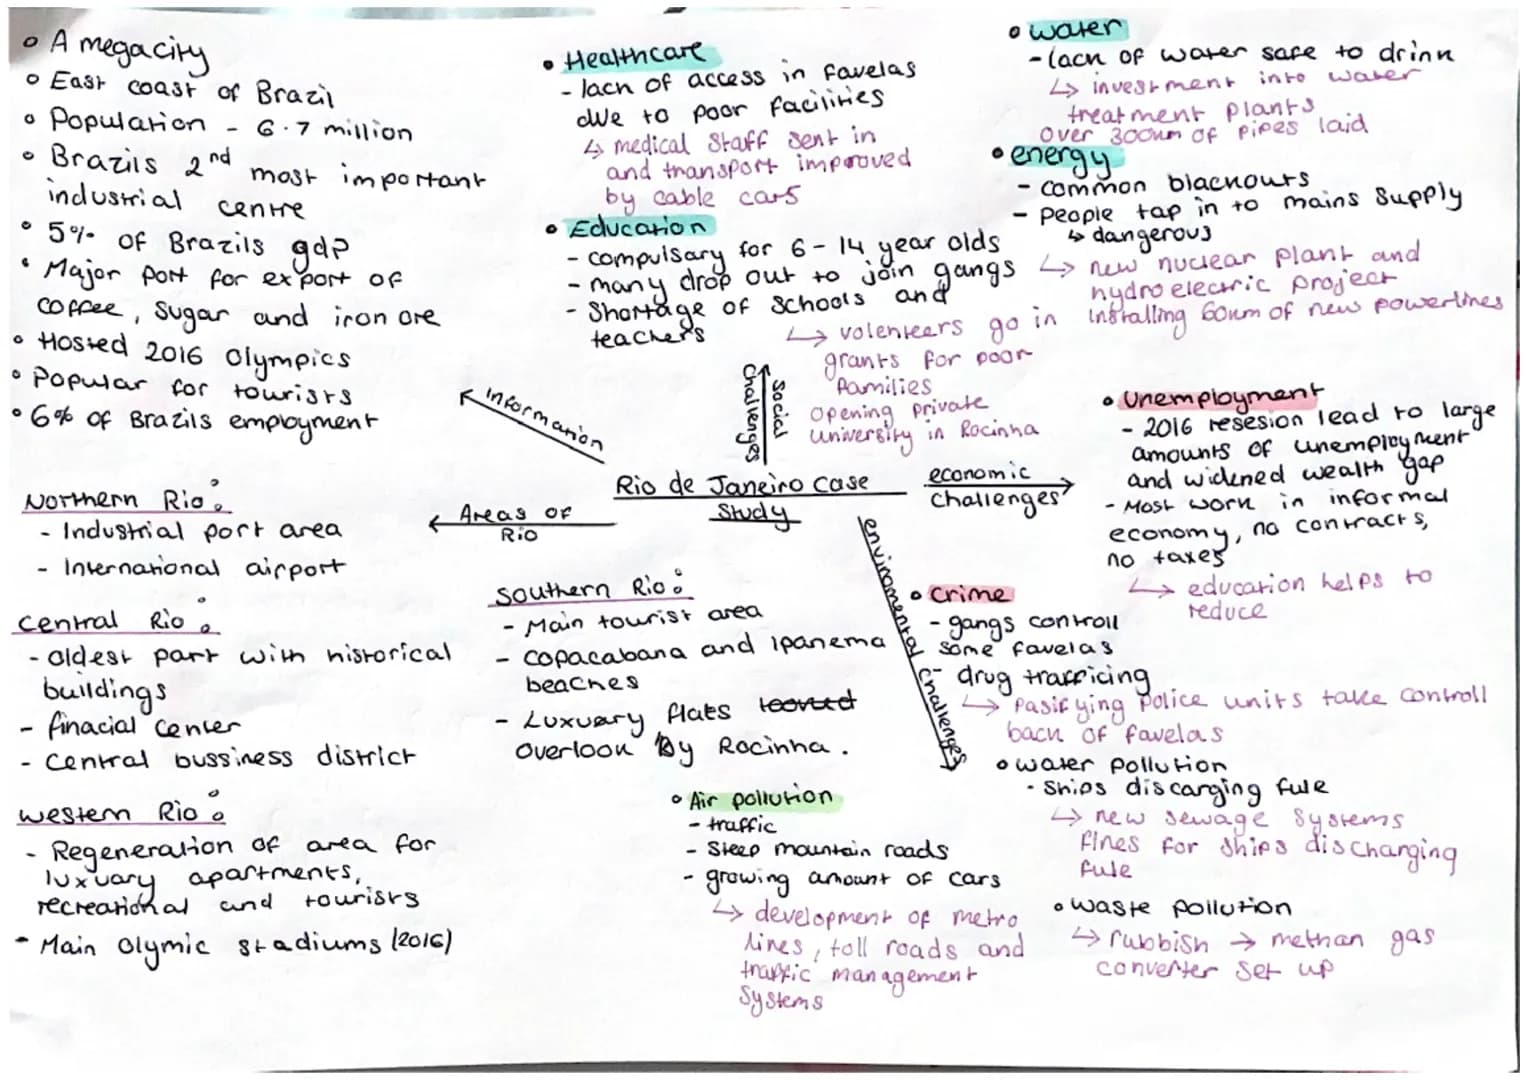 • A megacity
• East coast of Brazil
• Population - 6.7 million
• Brazils 2nd most important
industrial centre
• 5% of Brazils gdp
• Major port for export of
coffee, sugar and iron ore
• Hosted 2016 Olympics
• Popular for tourists
• 6% of Brazils employment
• Healthcare
- lack of access in favelas
due to poor facilities
↳ medical staff sent in
and transport improved
by cable cars
• Education
- compulsary for 6-14 year olds
- many drop out to join gangs
- Shortage of schools and
teachers
↳ volenteers go in
grants for poor
families
opening private
university in Rocinha
• water
- lack of water safe to drink
↳ investment into water
treatment plants
over 300km of pipes laid
• energy
- common blackouts
- people tap in to mains supply
↳ dangerous
↳ new nuclear plant and
hydroelectric project
installing 60km of new powerlines
information
Social
challenges
Rio de Janeiro case
study
economic
challenges
Areas of
Rio
enviromental challenges
• Unemployment
- 2016 resesion lead to large
amounts of unemployment
and widened wealth gap
- Most work in informal
economy, no contracts,
no taxes
↳ education helps to
reduce
Northern Rio:
- Industrial port area
- International airport
Central Rio:
- oldest part with historical
buildings
- finacial center
- central bussiness district
western Rio:
- Regeneration of area for
luxuary apartments,
recreational and tourists
- Main Olymic stadiums (2016)
Southern Rio:
- Main tourist area
- copacabana and ipanema
beaches
- Luxuary flats
overlook by Rocinha.
• Crime
- gangs controll
some favelas
- drug trafficing
↳ Pasifying police units take controll
back of favelas
• water pollution
- ships discarging fule
↳ new sewage systems
fines for ships discharging
fule
• waste pollution
↳ rubbish → methan gas
converter set up
• Air pollution
- traffic
- steep mountain roads
- growing amount of cars
↳ development of metro
lines, toll roads and
traffic management
systems